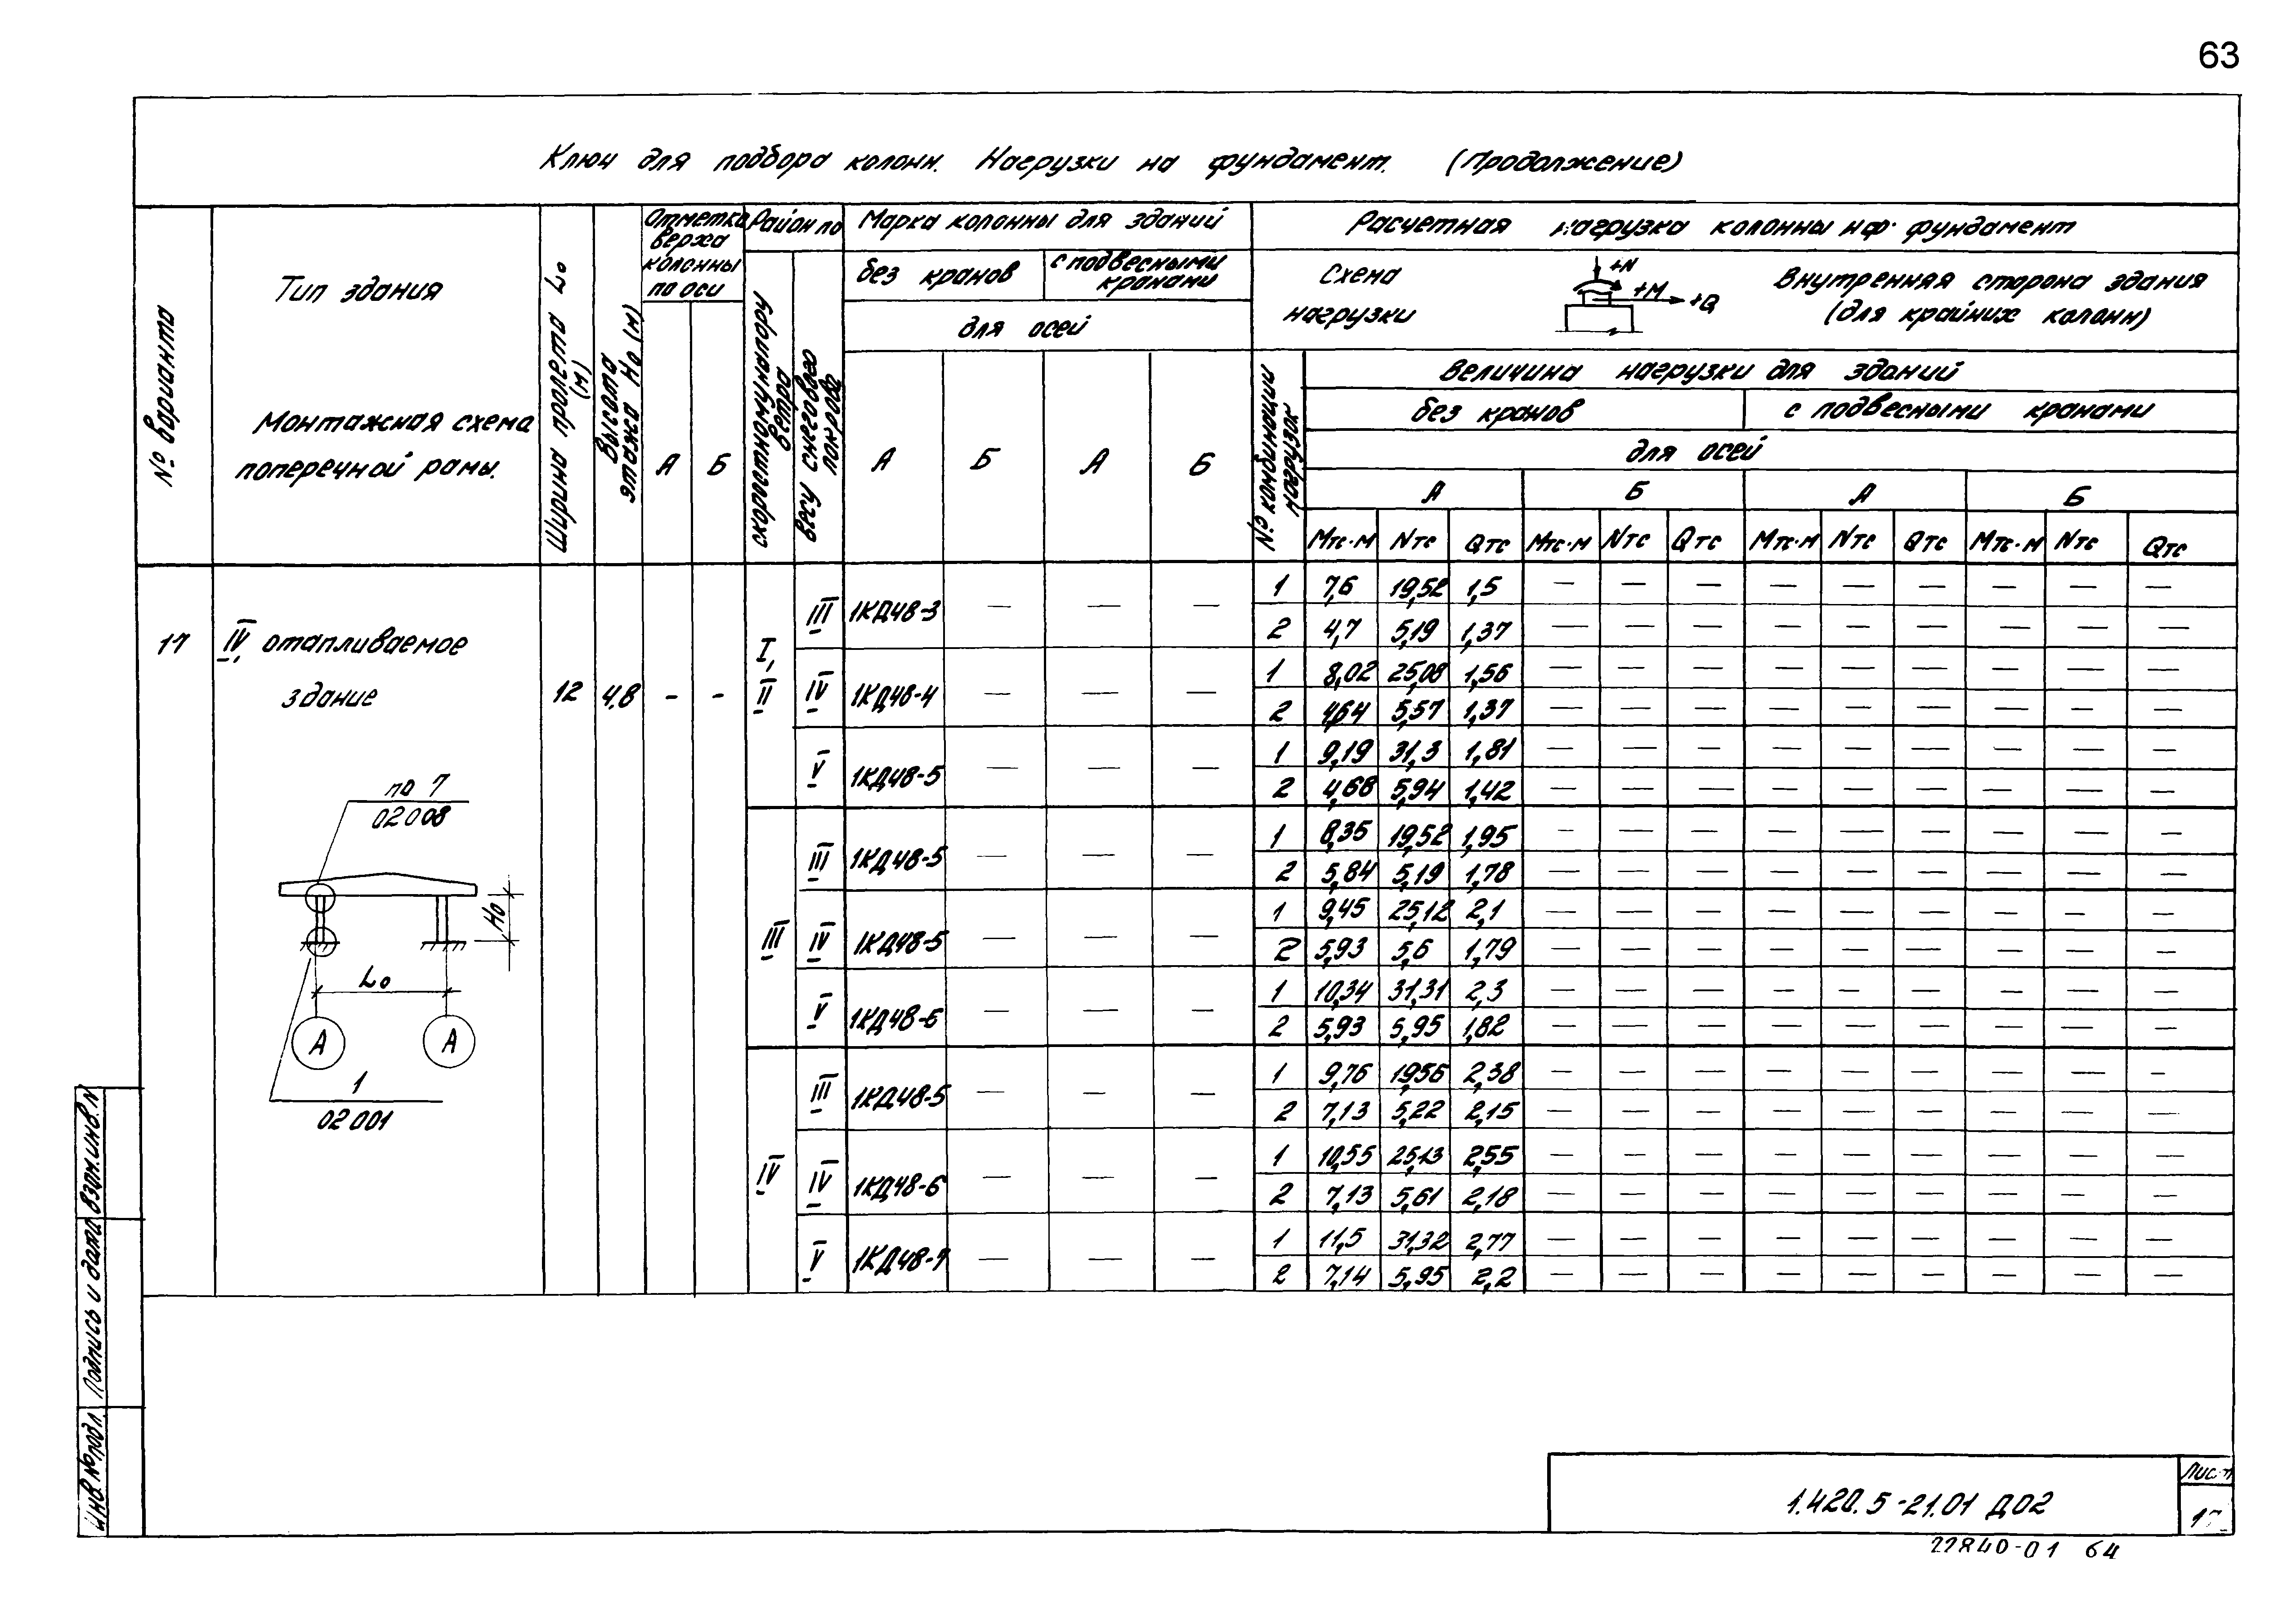 63
Ключ для подбора колонн. Нагрузки на фундамент. (Продолжение)
№ варианта
Тип здания
Монтажная схема
поперечной рамы.
Ширина пролета L₀
(м)
Высота
этажа H₀ (м)
Отметка
верха
колонны
по оси
А Б
Район по
скоростному напору
ветра
весу снегового
покрова
Марка колонны для зданий
без кранов
с подвесными
кранами
для осей
А Б А Б
Расчетная нагрузка колонны на фундамент
Схема
нагрузки
+N
+M
+Q
Внутренняя сторона здания
(для крайних колонн)
№ комбинации
нагрузок
Величина нагрузки для зданий
без кранов с подвесными кранами
для осей
А Б А Б
Мтс·м Nтс Qтс Мтс·м Nтс Qтс Мтс·м Nтс Qтс Мтс·м Nтс Qтс
17 IV, отапливаемое
здание
12 4,8 - -
I,
II
III 1КД48-3 — — —
1 7,6 19,52 1,5 — — — — — — — — —
2 4,7 5,19 1,37 — — — — — — — — —
IV 1КД48-4 — — —
1 8,02 25,08 1,56 — — — — — — — — —
2 4,64 5,57 1,37 — — — — — — — — —
V 1КД48-5 — — —
1 9,19 31,3 1,81 — — — — — — — — —
2 4,68 5,94 1,42 — — — — — — — — —
III
III 1КД48-5 — — —
1 8,35 19,52 1,95 — — — — — — — — —
2 5,84 5,19 1,78 — — — — — — — — —
IV 1КД48-5 — — —
1 9,45 25,12 2,1 — — — — — — — — —
2 5,93 5,6 1,79 — — — — — — — — —
V 1КД48-6 — — —
1 10,34 31,31 2,3 — — — — — — — — —
2 5,93 5,95 1,82 — — — — — — — — —
IV
III 1КД48-5 — — —
1 9,76 19,56 2,38 — — — — — — — — —
2 7,13 5,22 2,15 — — — — — — — — —
IV 1КД48-6 — — —
1 10,55 25,13 2,55 — — — — — — — — —
2 7,13 5,61 2,18 — — — — — — — — —
V 1КД48-7 — — —
1 11,5 31,32 2,77 — — — — — — — — —
2 7,14 5,95 2,2 — — — — — — — — —
по 7
02008
H₀
L₀
А А
1
02001
Взам.инв.N
Подпись и дата
Инв.№подл.
1.420.5-21.01 Д02
Лист
17
22840-01 64